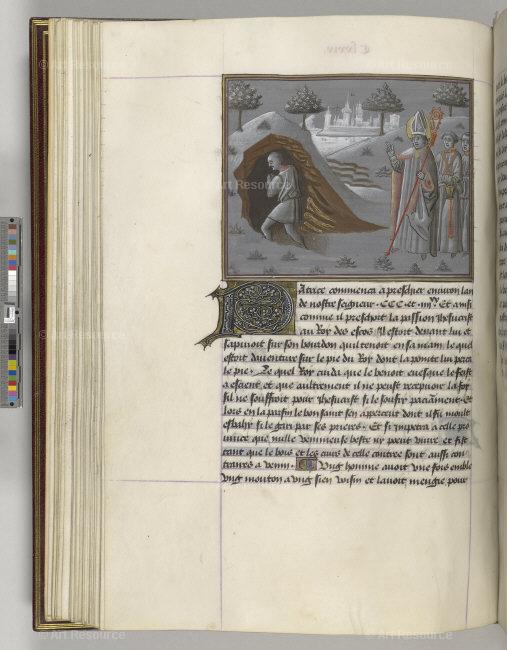 C lxviii.
Patrice commenca a preschier environ lan
de nostre seigneur . CCC . et . iiii . Et ainsi
comme il preschoit la passion Jhesucrist
au Roy des escos Il estoit devant lui et
sapuioit sur son bourdon quil tenoit en sa main le quel
estoit daventure sur le pie du Roy dont la pointe lui perca
le pie . Le quel Roy cuida que le benoit evesque le feist
a escient et que aultrement il ne peust recepvoir la foy
sil ne souffroit pour Jhesucrist si le souffry paciamment . Et
lors en la parfin le bon saint sen apperceut dont il fu moult
esbahy si le gari par ses prieres . Et si impetra a celle pro
vince que nulle venimeuse beste ny peut vivre et fist
tant que le bois et les cuirs de celle contree sont aussi con
traires a venin . Ung homme avoit une fois emble
ung mouton a ung sien voisin et lavoit mengie pour
© Art Resource
© Art Resource
© Art Resource